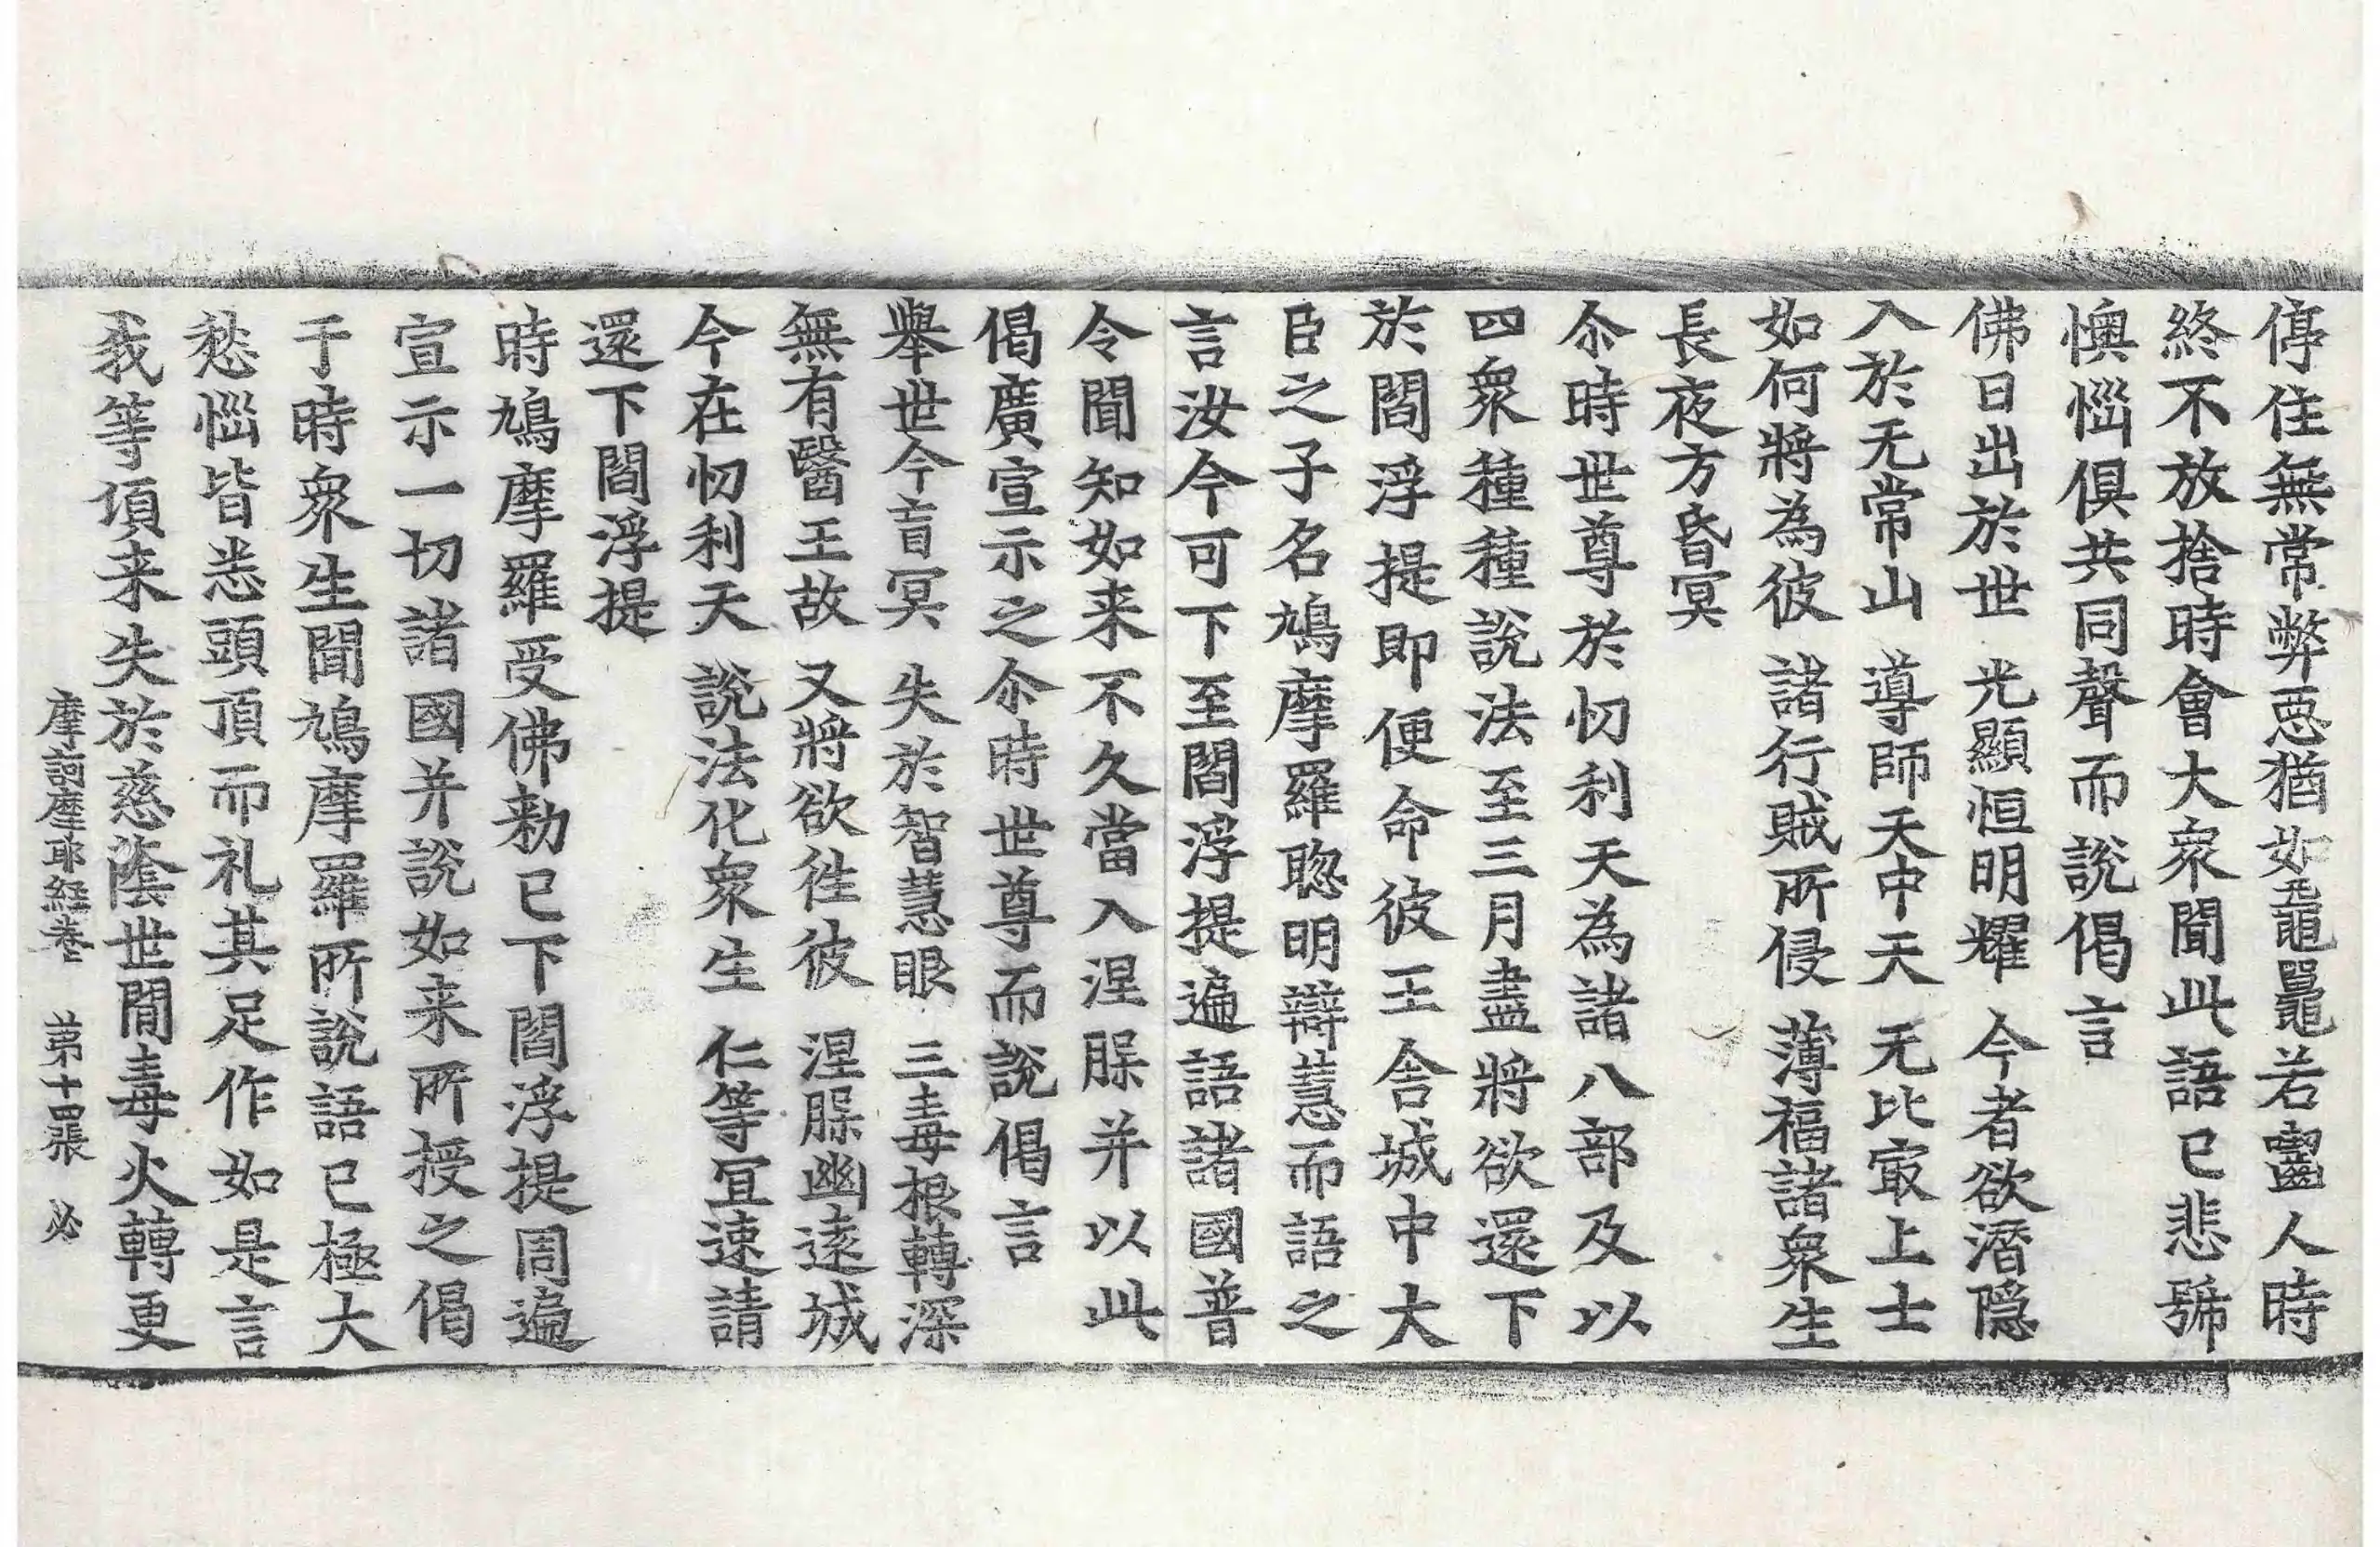 停住無常弊惡猶如黿鼉若齧人時
終不放捨時會大衆聞此語已悲號
懊惱俱共同聲而說偈言
佛日出於世　光顯恒明耀　今者欲潛隱
入於无常山　導師天中天　无比㝡上士
如何將為彼　諸行賊所侵　薄福諸衆生
長夜方昏冥
尒時世尊於忉利天為諸八部及以
四衆種種說法至三月盡將欲還下
於閻浮提即便命彼王舍城中大
臣之子名鳩摩羅聦明辯慧而語之
言汝今可下至閻浮提遍語諸國普
令聞知如来不久當入涅槃并以此
偈廣宣示之尒時世尊而說偈言
舉世今盲冥　失於智慧眼　三毒根轉深
無有醫王故　又將欲徃彼　涅槃幽遠城
今在忉利天　說法化衆生　仁等冝速請
還下閻浮提
時鳩摩羅受佛勑已下閻浮提周遍
宣示一切諸國并說如来所授之偈
于時衆生聞鳩摩羅所說語已極大
愁惱皆悉頭頂而礼其足作如是言
我等項来失於慈蔭世間毒火轉更
摩訶摩耶經卷　第十四張　必